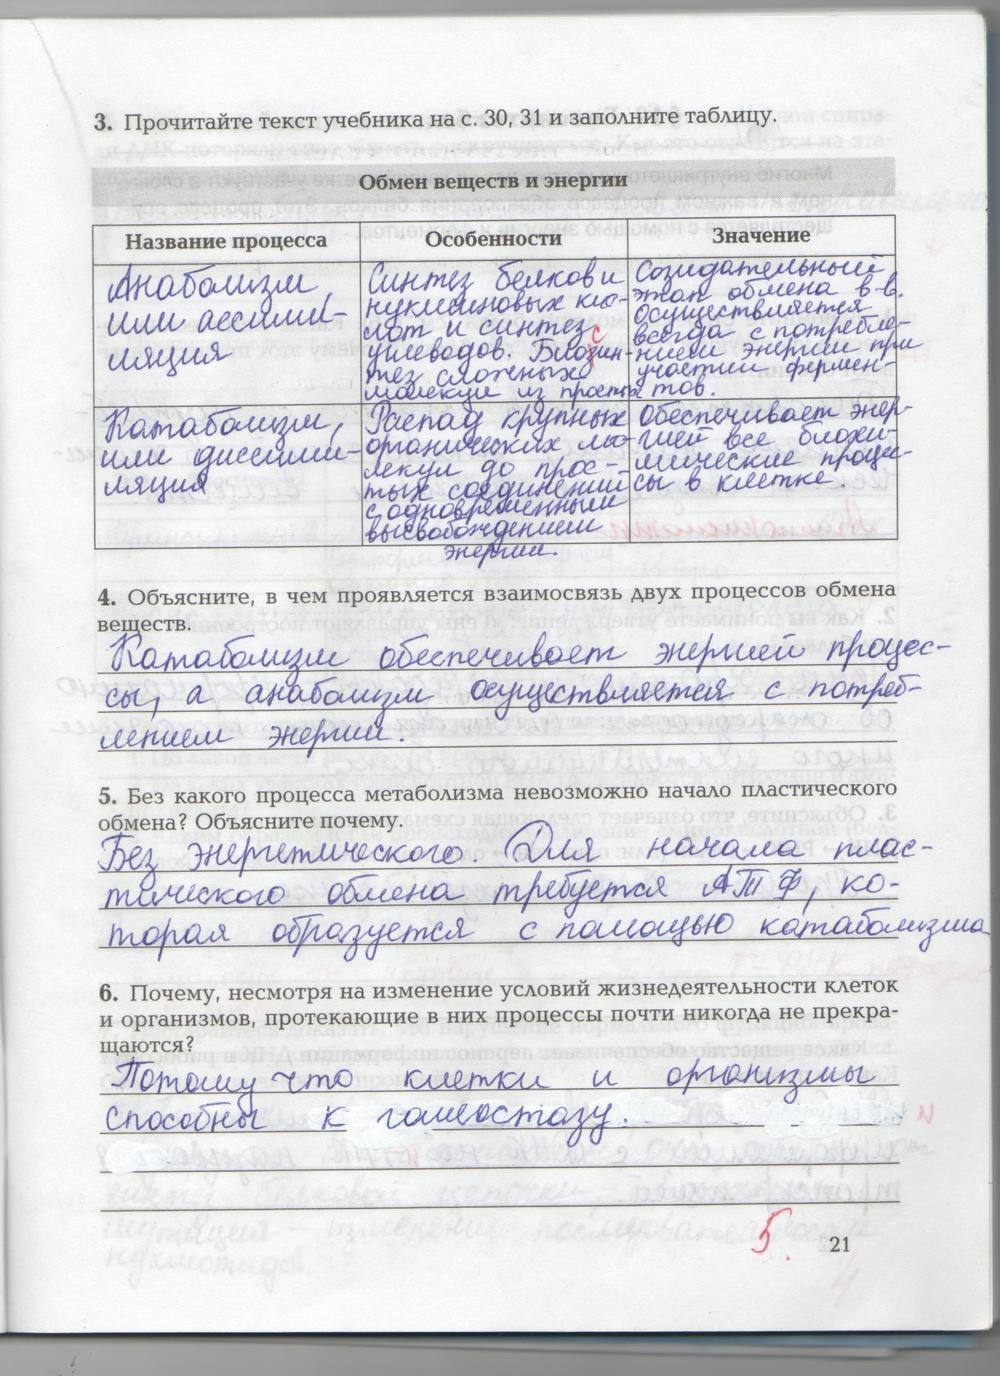 3. Прочитайте текст учебника на с. 30, 31 и заполните таблицу.
Обмен веществ и энергии
Название процесса
Особенности
Значение
Анаболизм,
или ассими-
ляция
Синтез белков и
нуклеиновых кис-
лот и синтез
углеводов. Биосин-
тез сложных
молекул из простых
Созидательный
этап обмена в-в.
Осуществляется
всегда с потребле-
нием энергии при
участии фермен-
тов.
Катаболизм,
или диссими-
ляция
Распад крупных
органических мо-
лекул до прос-
тых соединений
с одновременным
высвобождением
энергии.
Обеспечивает энер-
гией все биохи-
мические процес-
сы в клетке.
4. Объясните, в чем проявляется взаимосвязь двух процессов обмена
веществ.
Катаболизм обеспечивает энергией процес-
сы, а анаболизм осуществляется с потреб-
лением энергии.
5. Без какого процесса метаболизма невозможно начало пластического
обмена? Объясните почему.
Без энергетического. Для начала плас-
тического обмена требуется АТФ, ко-
торая образуется с помощью катаболизма
6. Почему, несмотря на изменение условий жизнедеятельности клеток
и организмов, протекающие в них процессы почти никогда не прекра-
щаются?
Потому что клетки и организмы
способны к гомеостазу.
5.
21